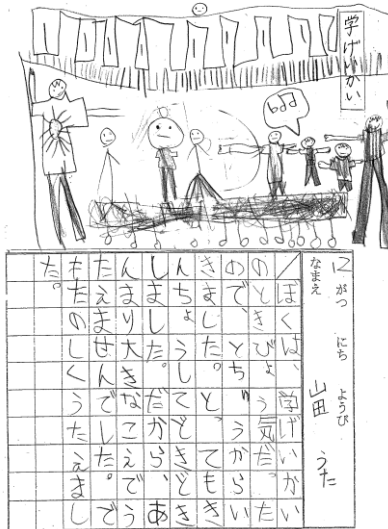 学げいかい
12がつ　にち　ようび
なまえ　山田　うた
ぼくは、学げいかい
のときびょう気だった
ので、とちゅうからい
きました。とってもき
んちょうしてどきどき
しました。だから、あ
んまり大きなこえでう
たえませんでした。で
もたのしくうたえまし
た。